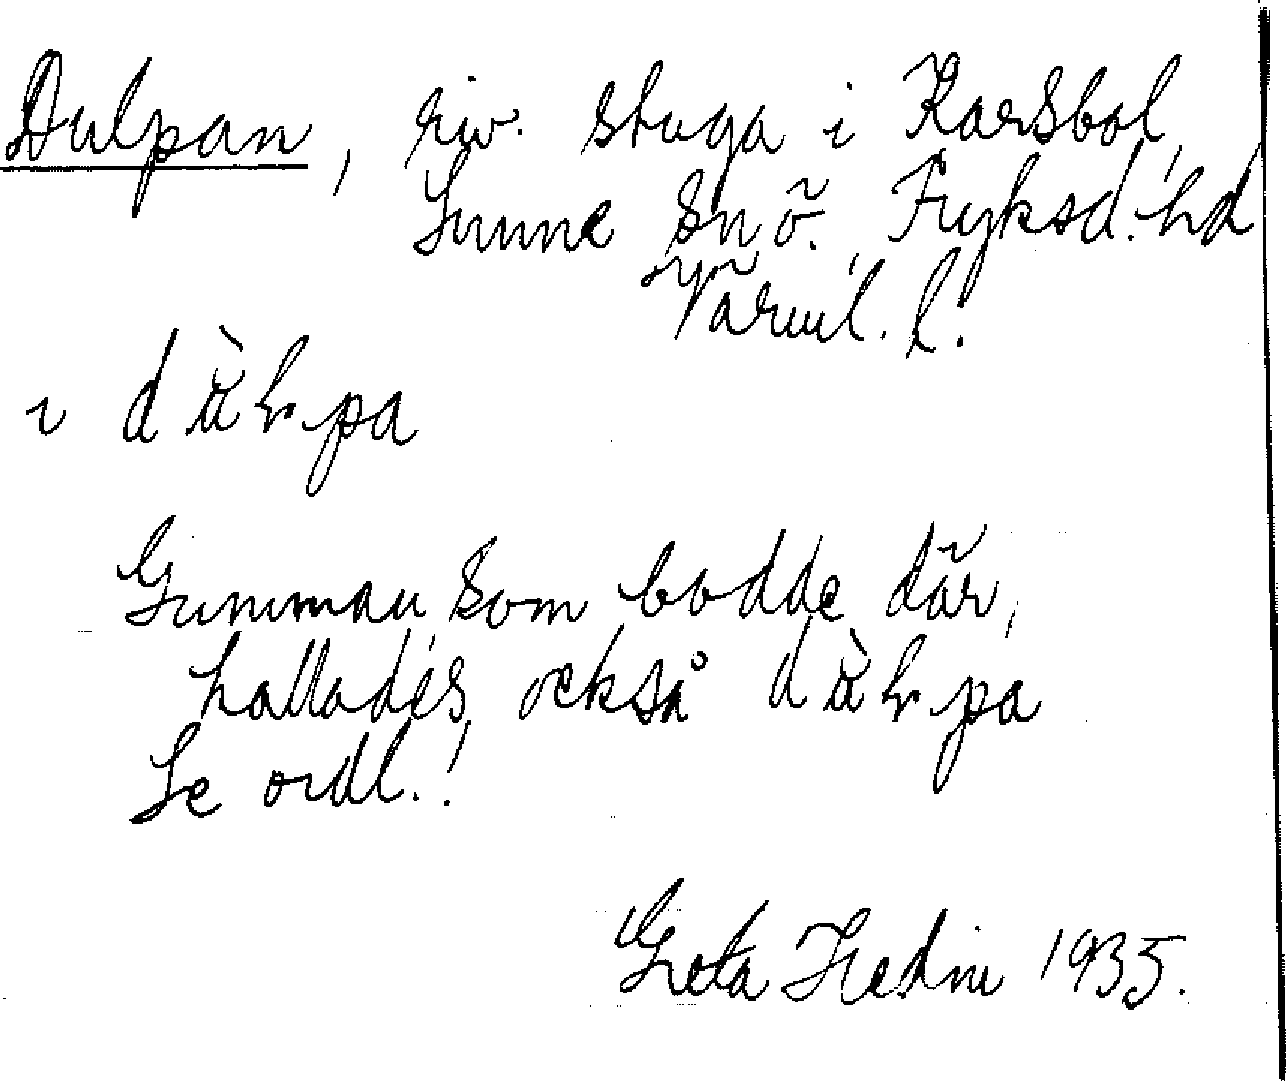 Dulpan, riv. stuga i Karsbol,
Sunne sn ö., Fryksd. hd
Värml. l.
Gumman, som bodde där,
kallades också
Se ordl.!
Greta Hedin 1935.